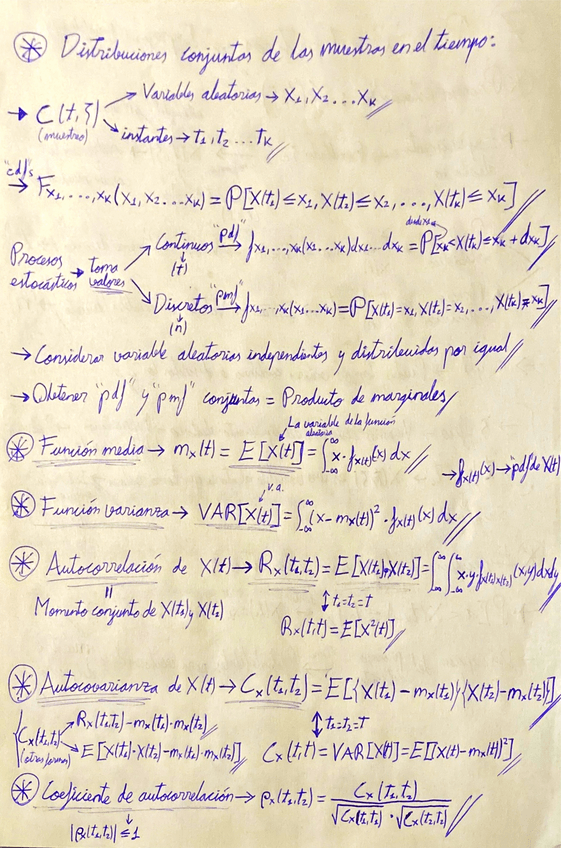 ⊛ Distribuciones conjuntas de las muestras en el tiempo:
→ C(t,ξ) → Variables aleatorias → X₁, X₂ ... Xₖ
(muestras) → instantes → t₁, t₂ ... tₖ
"cdf"s
→ F_{X₁,...,Xₖ}(x₁, x₂ ... xₖ) = P[X(t₁) ≤ x₁, X(t₂) ≤ x₂, ..., X(tₖ) ≤ xₖ]
Procesos estocásticos → toma valores → Continuos (t) "pdf" → f_{X₁,...,Xₖ}(x₁...xₖ)dx₁...dxₖ = P[xₖ < X(tₖ) ≤ xₖ + dxₖ]
→ Discretos (n) "pmf" → f_{X₁,...,Xₖ}(x₁...xₖ) = P[X(t₁) = x₁, X(t₂) = x₂, ..., X(tₖ) = xₖ]
→ Considerar variable aleatorias independientes y distribuidas por igual
→ Obtener "pdf" y "pmf" conjuntas = Producto de marginales
La variable de la función
aleatoria
⊛ Función media → mₓ(t) = E[X(t)] = ∫_{-∞}^{∞} x · f_{X(t)}(x) dx
→ f_{X(t)}(x) → "pdf" de X(t)
v.a.
⊛ Función varianza → VAR[X(t)] = ∫_{-∞}^{∞} (x - mₓ(t))² · f_{X(t)}(x) dx
⊛ Autocorrelación de X(t) → Rₓ(t₁,t₂) = E[X(t₁)·X(t₂)] = ∫_{-∞}^{∞}∫_{-∞}^{∞} x·y f_{X(t₁)X(t₂)}(x,y) dx dy
=
Momento conjunto de X(t₁) y X(t₂)
↕ t₁=t₂=t
Rₓ(t,t) = E[X²(t)]
⊛ Autocovarianza de X(t) → Cₓ(t₁,t₂) = E[{X(t₁) - mₓ(t₁)}{X(t₂) - mₓ(t₂)}]
↕ t₁=t₂=t
{Cₓ(t₁,t₂) → Rₓ(t₁,t₂) - mₓ(t₁)·mₓ(t₂)
(otras formas) → E[X(t₁)·X(t₂) - mₓ(t₁)·mₓ(t₂)]
Cₓ(t,t) = VAR[X(t)] = E[[X(t) - mₓ(t)]²]
⊛ Coeficiente de autocorrelación → ρₓ(t₁,t₂) = Cₓ(t₁,t₂) / (√Cₓ(t₁,t₁) · √Cₓ(t₂,t₂))
|ρₓ(t₁,t₂)| ≤ 1